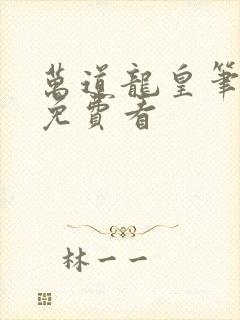 萬道龍皇筆
免費看
林一一